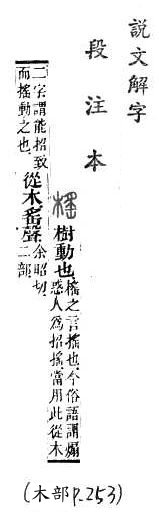 說文解字
段注本
榣 樹動也
榣之言搖也今俗語謂煽
惑人爲招搖當用此從木
二字謂能招致
而榣動之也
從木䍃聲
余昭切
二部
(木部 P.253)